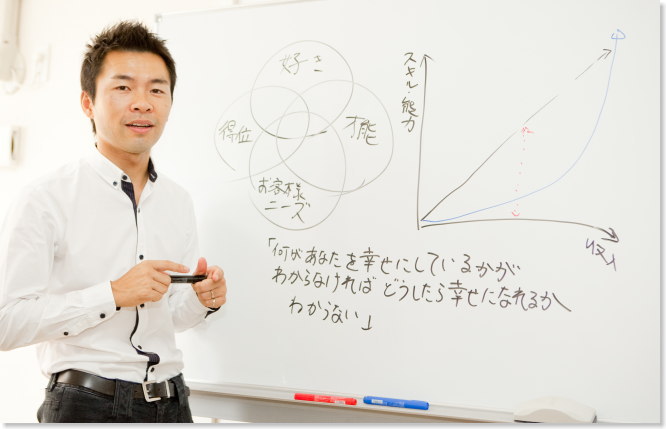 好き
得位
才能
お客様
ニーズ
スキル・能力
収入
「何があなたを幸せにしているかが
わからなければ どうしたら幸せになれるか
わからない」